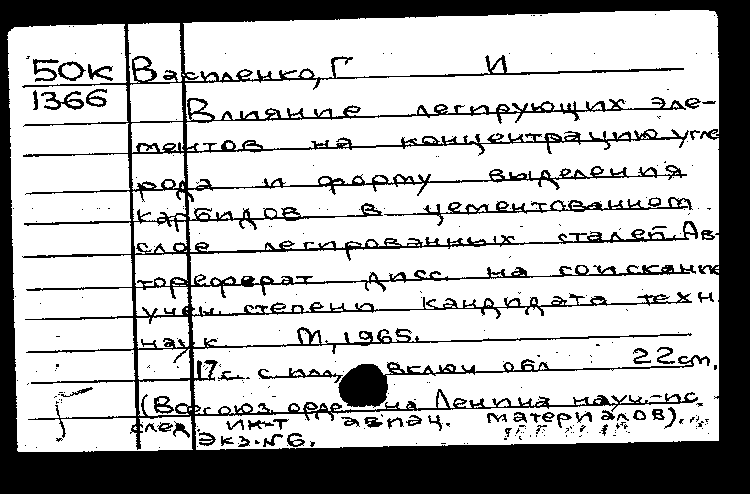 50к Василенко, Г И
1366 Влияние легирующих эле-
ментов на концентрацию угле
рода и форму выделения
карбидов в цементованном
слое легированных сталей. Ав-
тореферат дисс. на соискание
учен. степени кандидата техн.
наук М., 1965.
17 с. с илл., включ обл 22 см.
(Всесоюз орде на Ленина науч.-ис
след ин-т авиац. материалов).
Экз. №6.